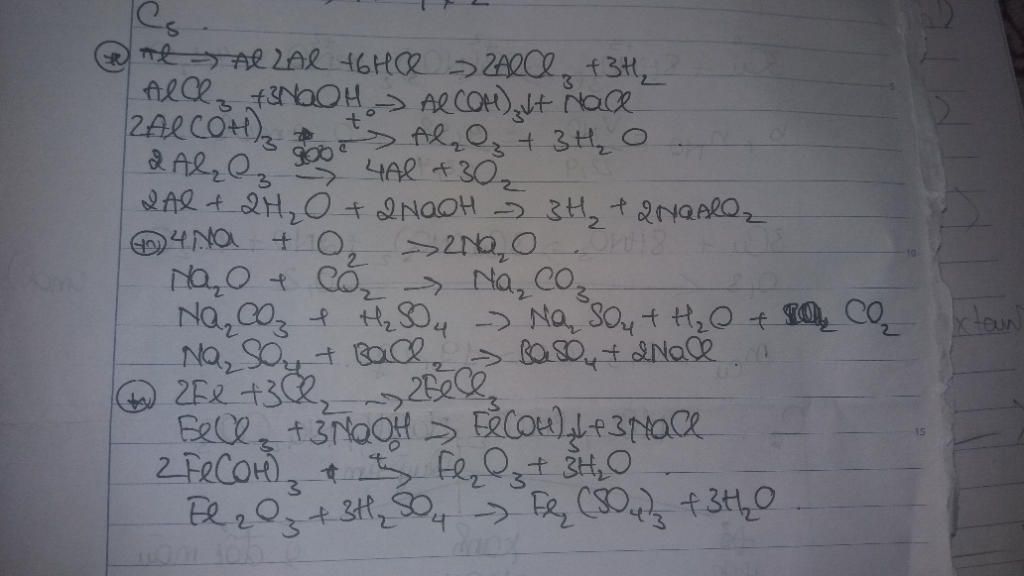 C5
Al → Al 2Al + 6HCl → 2AlCl₃ + 3H₂
AlCl₃ + 3NaOH → Al(OH)₃↓ + NaCl
2Al(OH)₃ t° → Al₂O₃ + 3H₂O
2Al₂O₃ 900° → 4Al + 3O₂
2Al + 2H₂O + 2NaOH → 3H₂ + 2NaAlO₂
4Na + O₂ → 2Na₂O
Na₂O + CO₂ → Na₂CO₃
Na₂CO₃ + H₂SO₄ → Na₂SO₄ + H₂O + CO₂
Na₂SO₄ + BaCl₂ → BaSO₄ + 2NaCl
2Fe + 3Cl₂ → 2FeCl₃
FeCl₃ + 3NaOH → Fe(OH)₃↓ + 3NaCl
2Fe(OH)₃ t° → Fe₂O₃ + 3H₂O
Fe₂O₃ + 3H₂SO₄ → Fe₂(SO₄)₃ + 3H₂O